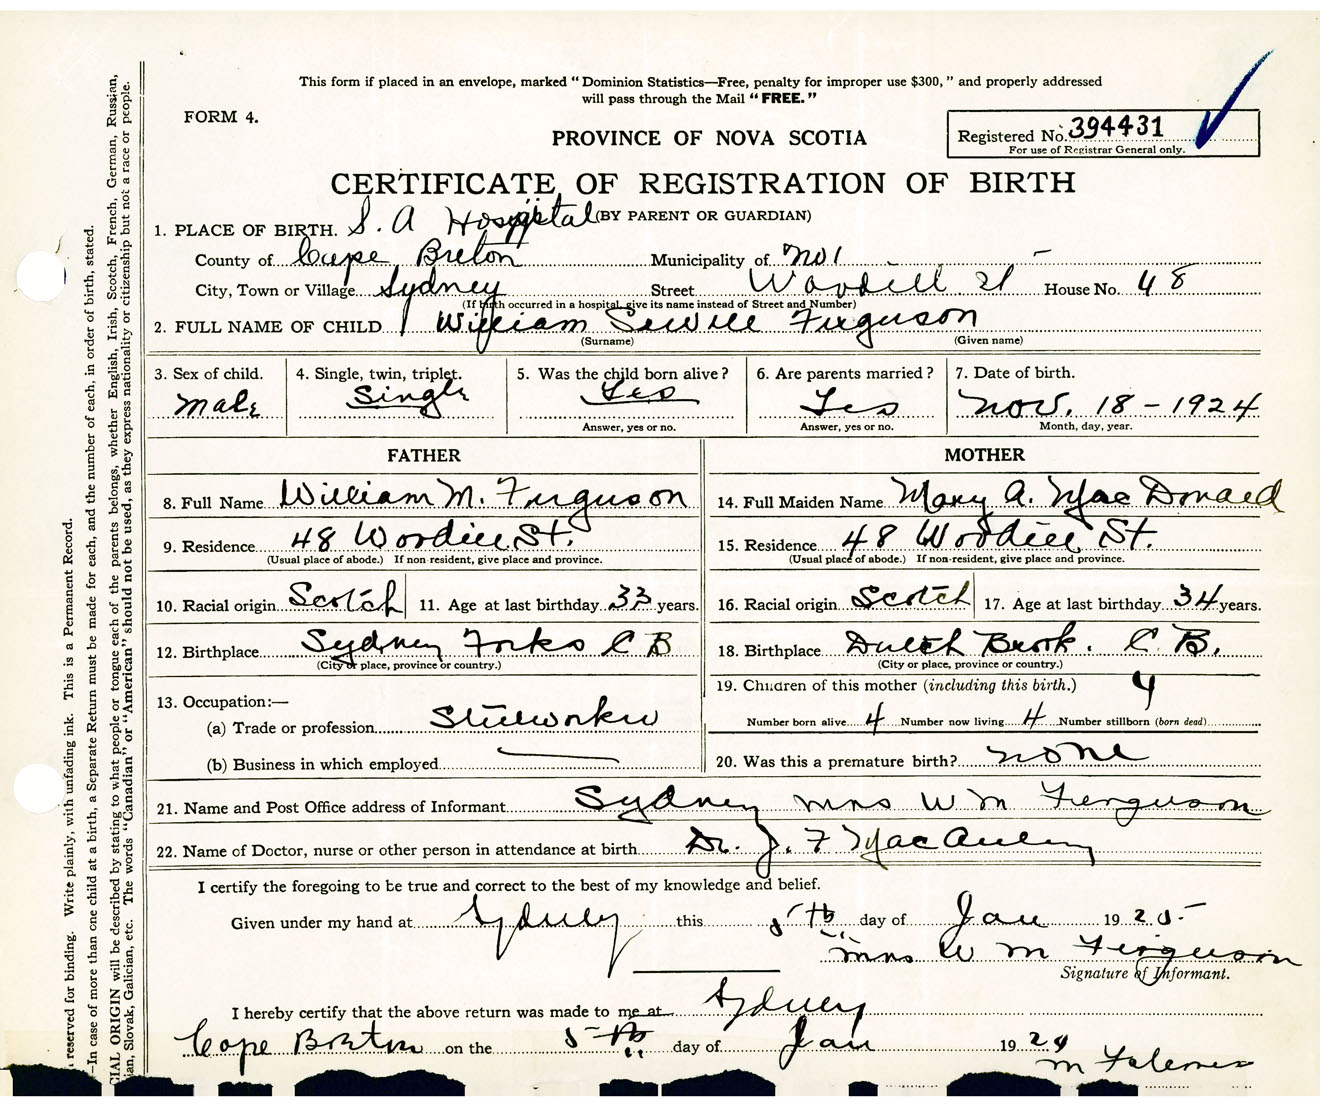 This form if placed in an envelope, marked "Dominion Statistics—Free, penalty for improper use $300," and properly addressed
will pass through the Mail "FREE."
FORM 4.
PROVINCE OF NOVA SCOTIA
Registered No. 394431
For use of Registrar General only.
CERTIFICATE OF REGISTRATION OF BIRTH
(BY PARENT OR GUARDIAN)
1. PLACE OF BIRTH. S. A Hospital
County of Cape Breton Municipality of No 1 –
City, Town or Village Sydney Street Woodill St House No. 48
(If birth occurred in a hospital give its name instead of Street and Number)
2. FULL NAME OF CHILD William Ferguson
(Surname) (Given name)
3. Sex of child. 4. Single, twin, triplet. 5. Was the child born alive? 6. Are parents married? 7. Date of birth.
Male Single Yes Yes Nov. 18 – 1924
Answer, yes or no. Answer, yes or no. Month, day, year.
FATHER MOTHER
8. Full Name William M. Ferguson 14. Full Maiden Name Mary A. Mac Donald
9. Residence 48 Woodill St. 15. Residence 48 Woodill St.
(Usual place of abode.) If non-resident, give place and province. (Usual place of abode.) If non-resident, give place and province.
10. Racial origin Scotch 11. Age at last birthday 33 years. 16. Racial origin Scotch 17. Age at last birthday 34 years.
12. Birthplace Sydney Forks C B 18. Birthplace Dutch Brook. C. B.
(City or place, province or country.) (City or place, province or country.)
19. Children of this mother (including this birth.) 4
13. Occupation:—
(a) Trade or profession Steelworker Number born alive 4 Number now living 4 Number stillborn (born dead)
(b) Business in which employed 20. Was this a premature birth? none
21. Name and Post Office address of Informant Sydney Mrs W M Ferguson
22. Name of Doctor, nurse or other person in attendance at birth Dr. J. F MacAuley
I certify the foregoing to be true and correct to the best of my knowledge and belief.
Given under my hand at Sydney this 5th day of Jan 1925
Mrs W M Ferguson
Signature of Informant.
I hereby certify that the above return was made to me at Sydney
Cape Breton on the 5th day of Jan 19
M
reserved for binding. Write plainly, with unfading ink. This is a Permanent Record.
—In case of more than one child at a birth, a Separate Return must be made for each, and the number of each, in order of birth, stated.
CIAL ORIGIN will be described by stating to what people or tongue each of the parents belongs, whether English, Irish, Scotch, French, German, Russian,
ian, Slovak, Galician, etc. The words "Canadian" or "American" should not be used, as they express nationality or citizenship but not a race or people.